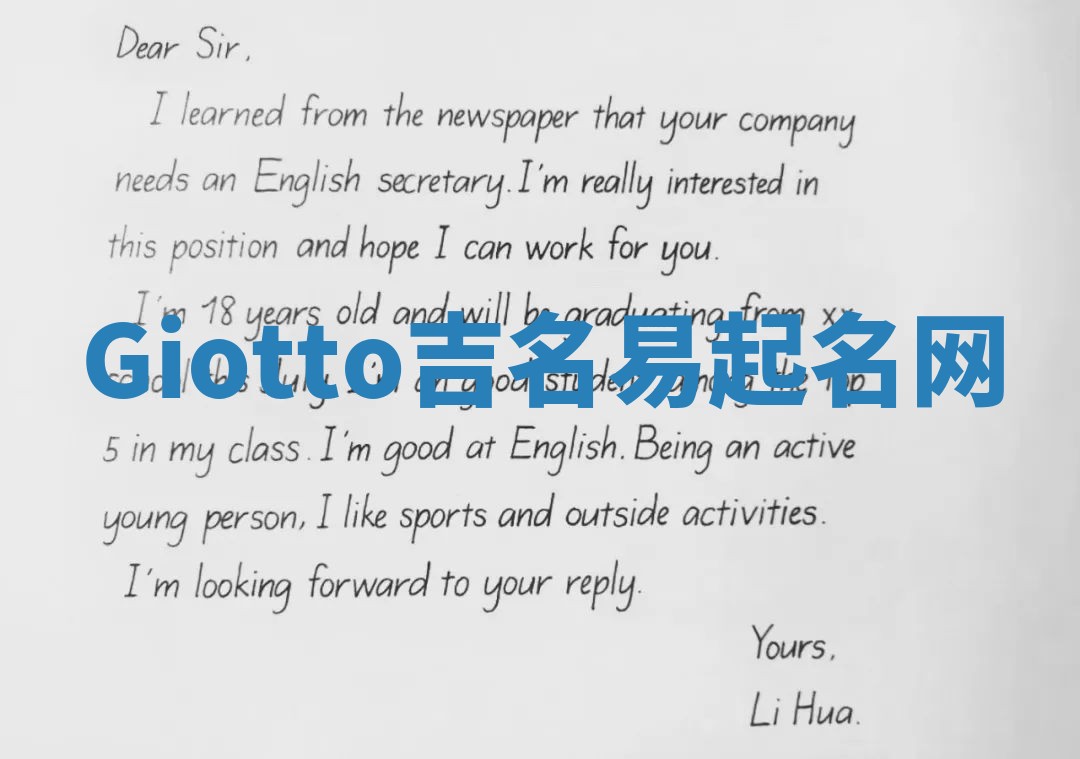 Dear Sir,
I learned from the newspaper that your company
needs an English secretary. I'm really interested in
this position and hope I can work for you.
I'm 18 years old and will be graduating from xx
Giotto吉名易起名网
school this July. I'm good student the Top
5 in my class. I'm good at English. Being an active
young person, I like sports and outside activities.
I'm looking forward to your reply.
Yours,
Li Hua.